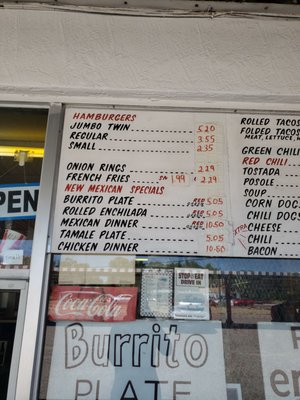 HAMBURGERS
JUMBO TWIN 5.20
REGULAR 3.55
SMALL 2.35
ONION RINGS 2.29
FRENCH FRIES SM 1.99 L 2.29
NEW MEXICAN SPECIALS
BURRITO PLATE 5.05
ROLLED ENCHILADA 5.05
MEXICAN DINNER 10.50
TAMALE PLATE 5.05
CHICKEN DINNER 10.50
ROLLED TACOS
FOLDED TACOS
MEAT, LETTUCE,
GREEN CHILI
RED CHILI
TOSTADA
POSOLE
SOUP
CORN DOG
CHILI DOGS
XTRA
CHEESE
CHILI
BACON
PEN
Coca-Cola
STOP EAT
DRIVE IN
Burrito
PLATE